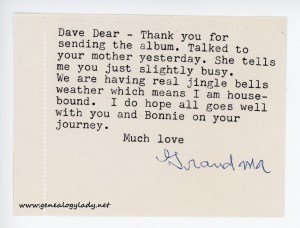 Dave Dear - Thank you for
sending the album. Talked to
your mother yesterday. She tells
me you just slightly busy.
We are having real jingle bells
weather which means I am house-
bound. I do hope all goes well
with you and Bonnie on your
journey.
Much love
Grandma
www.genealogylady.net